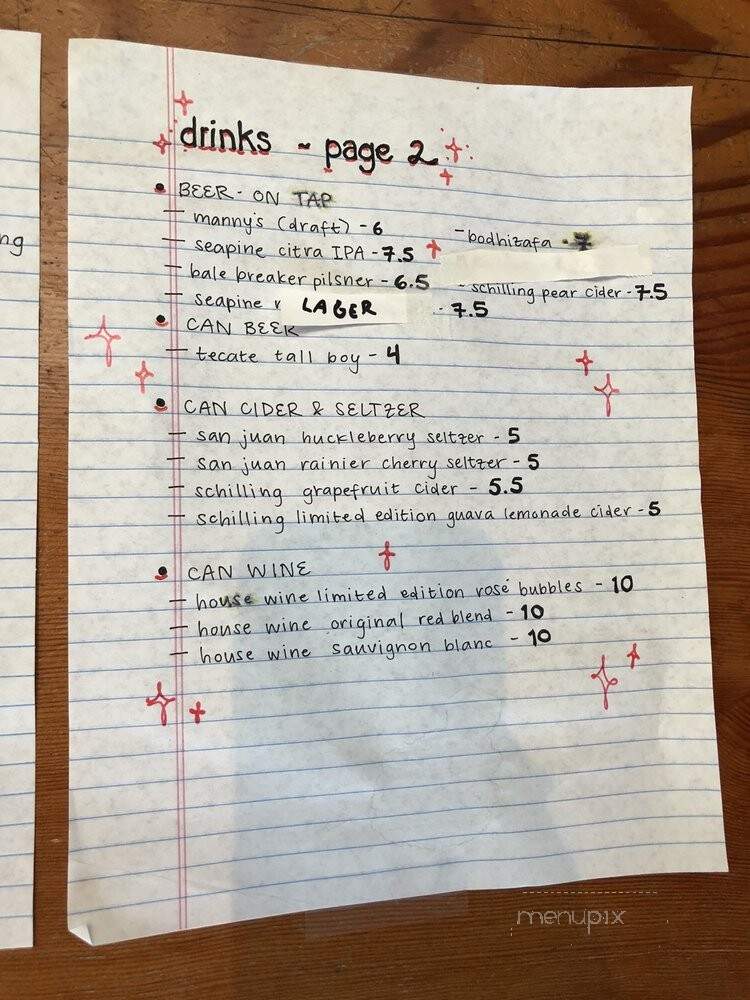 ng
drinks ~ page 2
• BEER - ON TAP
— manny's (draft) - 6
— seapine citra IPA - 7.5
— bale breaker pilsner - 6.5
— seapine LAGER - 7.5
- bodhizafa - 7
- schilling pear cider - 7.5
• CAN BEER
— tecate tall boy - 4
• CAN CIDER & SELTZER
— san juan huckleberry seltzer - 5
— san juan rainier cherry seltzer - 5
— schilling grapefruit cider - 5.5
— schilling limited edition guava lemonade cider - 5
• CAN WINE
— house wine limited edition rosé bubbles - 10
— house wine original red blend - 10
— house wine sauvignon blanc - 10
menupix